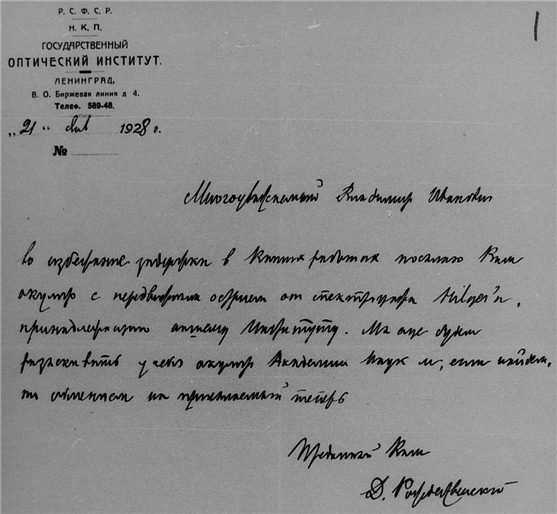 Р. С. Ф. С. Р.
Н. К. П.
ГОСУДАРСТВЕННЫЙ
ОПТИЧЕСКИЙ ИНСТИТУТ.
ЛЕНИНГРАД,
В. О. Биржевая линия д 4.
Телеф. 589-48.
„21" янв 1928 г.
№
1
Многоуважаемый Владимир Иванович
во избежание задержки в Ваших работах посылаю Вам
окуляр с передвижным острием от спектрографа Hilger'а,
принадлежащего нашему Институту. Мы еще будем
разыскивать у себя окуляр Академии Наук и, если найдем,
то обменяем на присылаемый теперь
Преданный Вам
Д. Рождественский